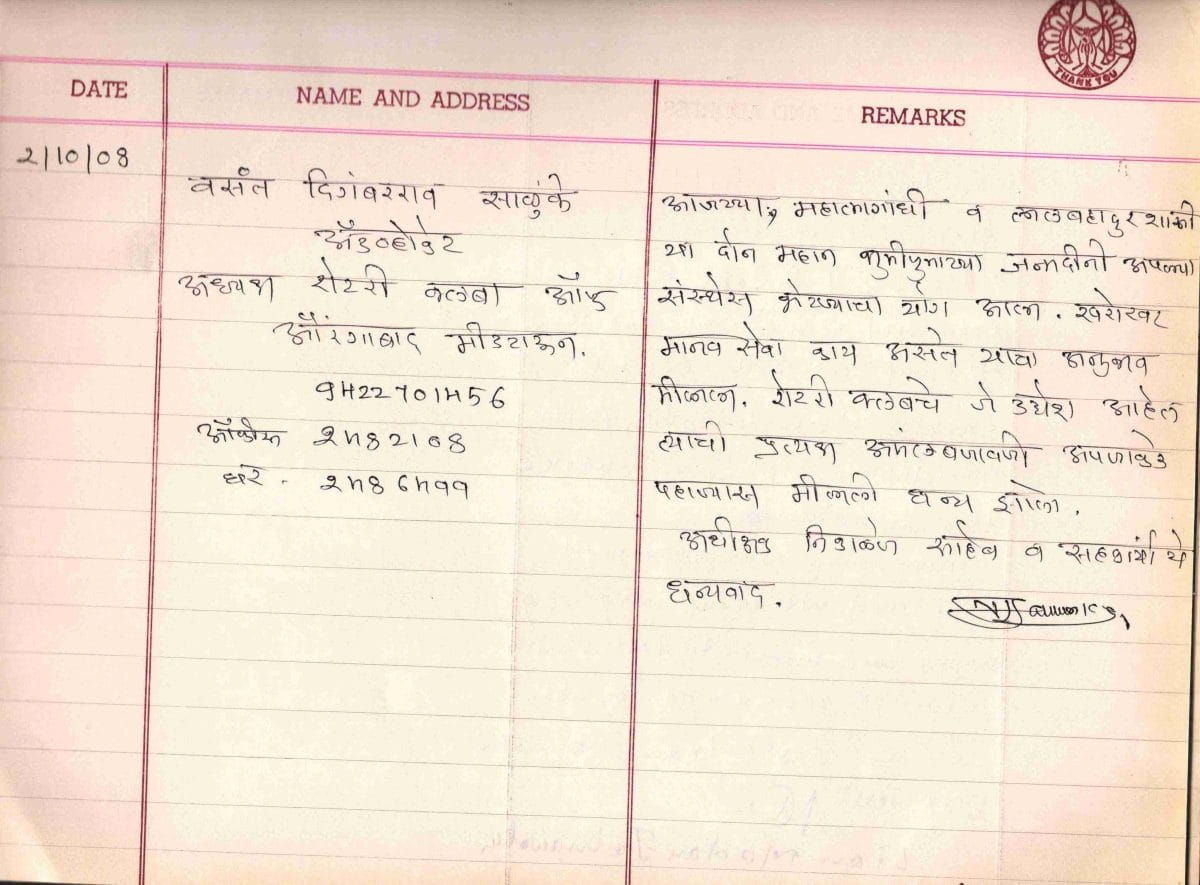 THANK YOU
DATE
NAME AND ADDRESS
REMARKS
2/10/08
वसंत दिगंबरराव साळुंके
अॅडव्होकेट
अध्यक्ष रोटरी क्लब ऑफ
औरंगाबाद मीडटाऊन.
9422701456
ऑफीस 2482108
घर - 2486499
आजच्या, महात्मागांधी व लालबहादुर शास्त्री
या दोन महान जन्मदीनी आपल्या
संस्थेस भेटण्याचा योग आला. खरोखर
मानव सेवा काय असते याचा अनुभव
मीळाला. रोटरी क्लबचे जे उद्येश आहेत
त्याची प्रत्यक्ष अंमलबजावणी आपणाकडे
पहाण्यास मीळाली धन्य झालो.
अधीक्षक साहेब व सहकार्यांचे
धन्यवाद.